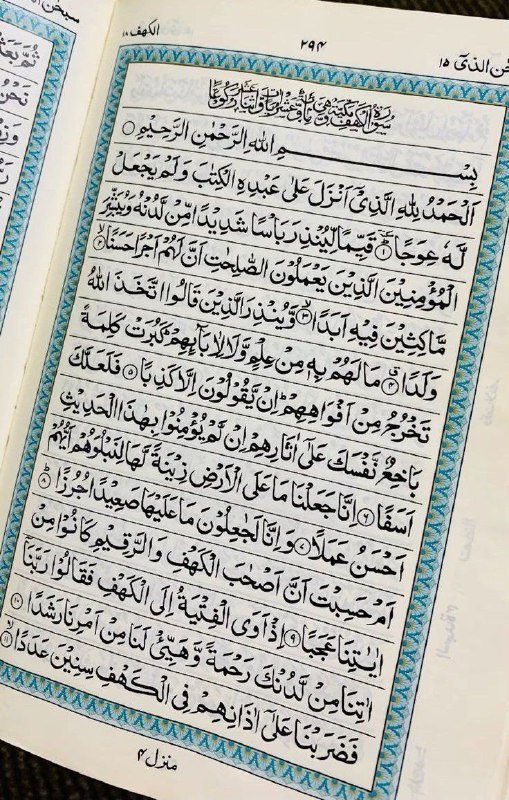 الكهف ١٨
٢٩٤
سبحن الذی ١٥
سُوْرَةُ الْكَهْفِ مَكِّيَّةٌ وَّهِيَ مِائَةٌ وَّعَشْرُ اٰيَاتٍ وَّاثْنَا عَشَرَ رُكُوْعًا
بِسْمِ اللّٰهِ الرَّحْمٰنِ الرَّحِيْمِ
اَلْحَمْدُ لِلّٰهِ الَّذِیْۤ اَنْزَلَ عَلٰی عَبْدِهِ الْكِتٰبَ وَلَمْ یَجْعَلْ
لَّهٗ عِوَجًا ؕ‏ ﴿۱﴾ قَیِّمًا لِّیُنْذِرَ بَاْسًا شَدِیْدًا مِّنْ لَّدُنْهُ وَیُبَشِّرَ
الْمُؤْمِنِیْنَ الَّذِیْنَ یَعْمَلُوْنَ الصّٰلِحٰتِ اَنَّ لَهُمْ اَجْرًا حَسَنًا ۙ ﴿۲﴾
مَّاكِثِیْنَ فِیْهِ اَبَدًا ۙ ﴿۳﴾ وَّیُنْذِرَ الَّذِیْنَ قَالُوا اتَّخَذَ اللّٰهُ
وَلَدًا ۗ ﴿۴﴾ مَا لَهُمْ بِهٖ مِنْ عِلْمٍ وَّلَا لِاٰبَآىِٕهِمْ ؕ كَبُرَتْ كَلِمَةً
تَخْرُجُ مِنْ اَفْوَاهِهِمْ ؕ اِنْ یَّقُوْلُوْنَ اِلَّا كَذِبًا ﴿۵﴾ فَلَعَلَّكَ
بَاخِعٌ نَّفْسَكَ عَلٰۤی اٰثَارِهِمْ اِنْ لَّمْ یُؤْمِنُوْا بِهٰذَا الْحَدِیْثِ
اَسَفًا ﴿۶﴾ اِنَّا جَعَلْنَا مَا عَلَی الْاَرْضِ زِیْنَةً لَّهَا لِنَبْلُوَهُمْ اَیُّهُمْ
اَحْسَنُ عَمَلًا ﴿۷﴾ وَاِنَّا لَجٰعِلُوْنَ مَا عَلَیْهَا صَعِیْدًا جُرُزًا ؕ ﴿۸﴾
اَمْ حَسِبْتَ اَنَّ اَصْحٰبَ الْكَهْفِ وَالرَّقِیْمِ كَانُوْا مِنْ
اٰیٰتِنَا عَجَبًا ﴿۹﴾ اِذْ اَوَی الْفِتْیَةُ اِلَی الْكَهْفِ فَقَالُوْا رَبَّنَاۤ
اٰتِنَا مِنْ لَّدُنْكَ رَحْمَةً وَّهَیِّئْ لَنَا مِنْ اَمْرِنَا رَشَدًا ﴿۱۰﴾
فَضَرَبْنَا عَلٰۤی اٰذَانِهِمْ فِی الْكَهْفِ سِنِیْنَ عَدَدًا ۙ ﴿۱۱﴾
منزل ٤